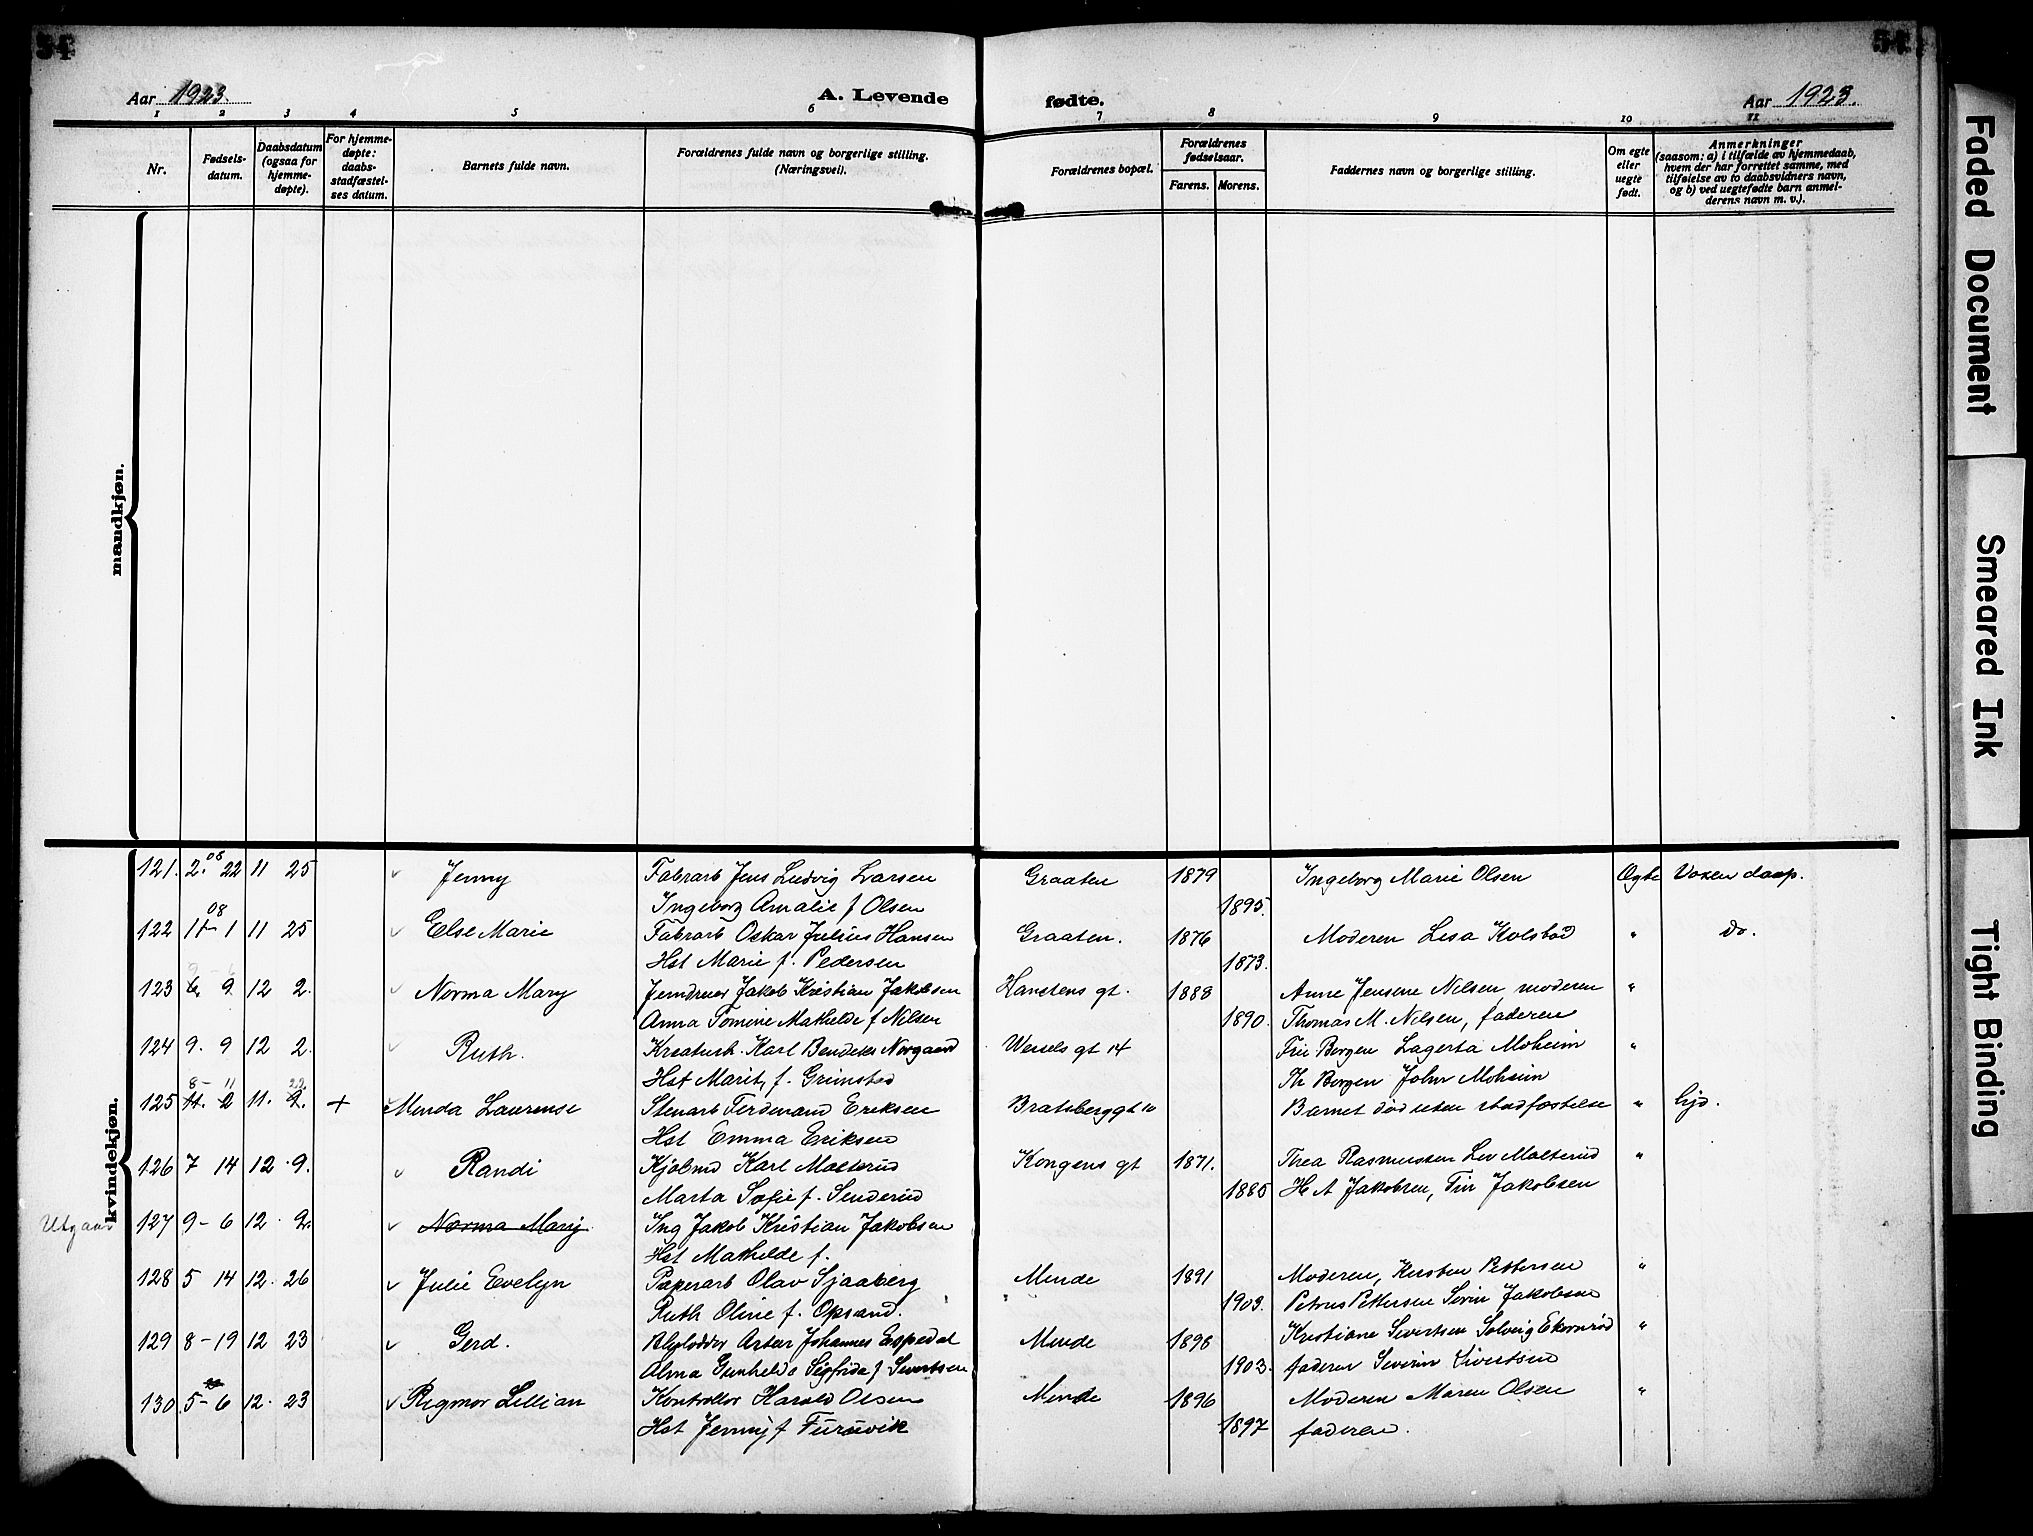 54
54
Aar 1923.
A. Levende
fødte.
Aar 1923.
1 2 3 4 5 6 7 8 9 10 11
Nr.
Fødsels-
datum.
Daabsdatum
(ogsaa for
hjemme-
døpte).
For hjemme-
døpte:
daabs-
stadfæstel-
ses datum.
Barnets fulde navn.
Forældrenes fulde navn og borgerlige stilling.
(Næringsvei).
Forældrenes bopæl.
Forældrenes
fødselsaar.
Farens. Morens.
Faddernes navn og borgerlige stilling.
Om egte
eller
uegte
født.
Anmerkninger
(saasom: a) i tilfælde av hjemmedaab,
hvem der har forrettet samme, med
tilføielse av to daabsvidners navn,
og b) ved uegtefødte barn anmel-
derens navn m. v.).
mandkjøn.
kvindekjøn.
08
121. 2. 22 11 25 Jenny Fabrarb Jens Ludvig Larsen Graaten 1879 Ingeborg Marie Olsen Ogte Voxen daap.
Ingeborg Amalie f Olsen 1895.
08
122 11 - 1 11 25 Else Marie Fabrarb Oskar Julius Hansen Graaten. 1876 Moderen Lisa Kolsbad " Do.
Hst Marie f. Pedersen 1873.
123 9 12 2. Norma Mary Jakob Kristian Jakobsen gt. 1888 Anne Jensene Nilsen, moderen "
Anna Tomine Mathilde f Nilsen 1890. Thomas M. Nilsen, faderen
124 9. 9 12 2. Ruth. Karl Norgaard Wessels gt 14 Borgen Lagerta Moheim "
Hst Marit, f. Grimstad Th Borgen John Moheim
8 - 11 22
125 11. 2 11. 2. + Menda Laurense Stenarb Ferdinand Eriksen Bratsberggt 10 Barnet død uten stadfæstelse " hjd.
Hst Emma Eriksen
126 7 14 12 9. Randi Kjøbmd Karl Molterud Kongens gt 1871. Thea Rasmussen Molterud "
Marta Sofie f. Senderud 1885 H A Jakobsen, Jakobsen
Utgaar 127 9 - 6 12. 2. Norma Mary. Ing Jakob Kristian Jakobsen
Hst Mathilde f.
128 5 14 12. 26 Julie Evelyn Paperarb Olav Sjaaberg Mende 1891 Moderen, Kirsten Pettersen "
Ruth Oline f. Opsand. 1903. Petrus Pettersen Jakobsen
129 8 - 19 12 23 Gerd. Johannes Espedal Mende 1898 Kristiane Sivertsen Solveig Ekornrød "
Alma Gunhilda Sigfrida f Sivertsen 1902. faderen Severin Sivertsen
130 5 - 6 12. 23 Rigmor Lillian Kontrollør Harald Olsen Mende 1896 Moderen Maren Olsen "
Hst Jenny f Furuvik 1897 faderen.
Faded Document
Smeared Ink
Tight Binding